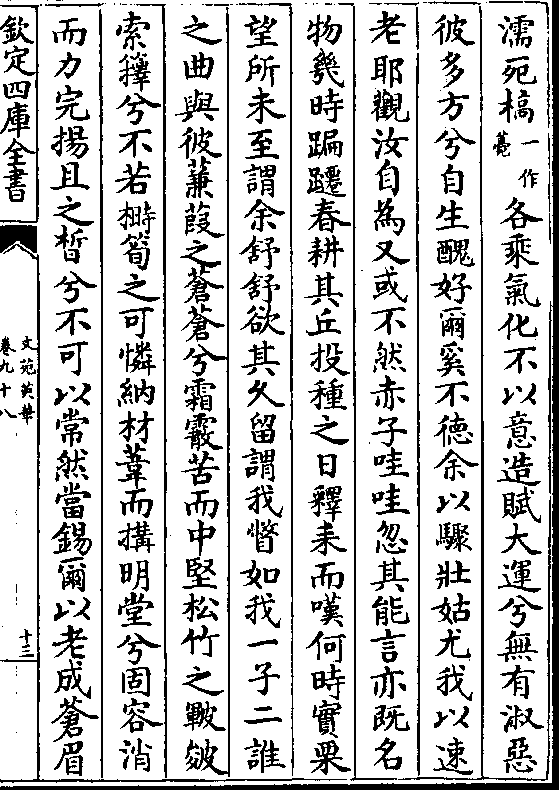 濡死槁一作薧各乘氣化不以意造賦大運兮無有淑惡
彼多方兮自生醜好爾奚不德余以驟壯姑尤我以速
老耶觀汝自為又或不然赤子哇哇忽其能言亦既名
物幾時蹁躚春耕其丘投種之日釋耒而嘆何時實栗
望所未至謂余舒舒欲其久留謂我瞥如我一子二誰
之曲與彼蒹葭之蒼蒼兮霜霰苦而中堅松竹之皸皴
索籜兮不若櫛筍之可憐納材葦而搆明堂兮固容消
而力完揚且之晳兮不可以常然當錫爾以老成蒼眉
欽定四庫全書
文苑英華
卷九十八
十三